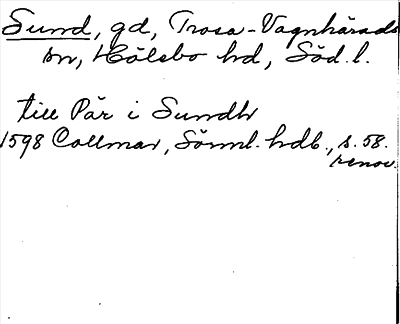 Sund, gd, Trosa-Vagnhärads
sn, Hölebo hd, Söd. l.
till Pär i Sundh
1598 Collmar, Sörml. hdb., s. 58.
renov.